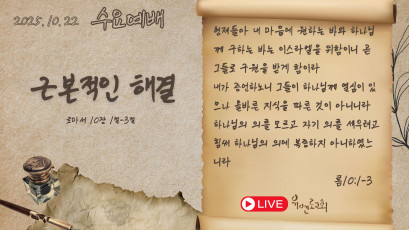 2025.10.22 수요예배
근본적인 해결
로마서 10장 1절-3절
형제들아 내 마음에 원하는 바와 하나님
께 구하는 바는 이스라엘을 위함이니 곧
그들로 구원을 받게 함이라
내가 증언하노니 그들이 하나님께 열심이 있
으나 올바른 지식을 따른 것이 아니니라
하나님의 의를 모르고 자기 의를 세우려고
힘써 하나님의 의에 복종하지 아니하였느
니라
롬10:1-3
LIVE
교회